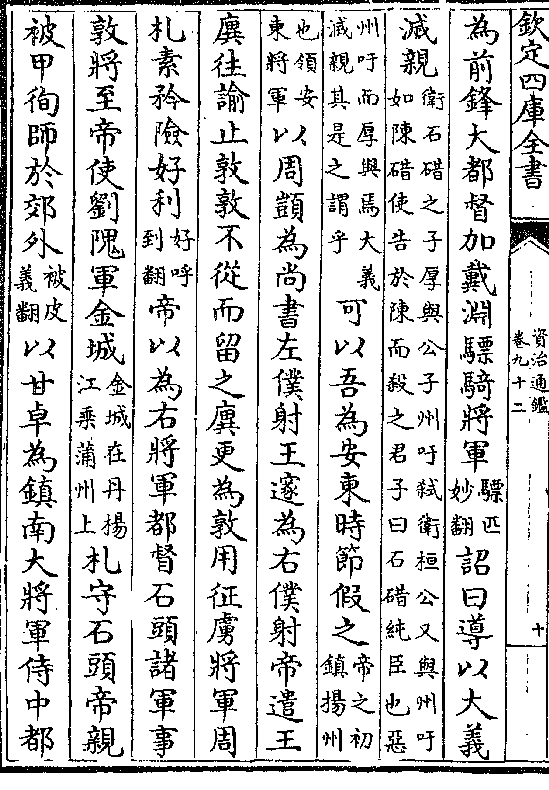 欽定四庫全書
資治通鑑
卷九十二
十
為前鋒大都督加戴淵驃騎將軍驃匹妙翻詔曰導以大義
滅親衛石碏之子厚與公子州吁弑衛桓公又與州吁如陳碏使告於陳而殺之君子曰石碏純臣也惡
州吁而厚與焉大義滅親其是之謂乎可以吾為安東時節假之帝之初鎮揚州
也領安東將軍以周顗為尚書左僕射王邃為右僕射帝遣王
廙往諭止敦敦不從而留之廙更為敦用征虜將軍周
札素矜險好利好呼到翻帝以為右將軍都督石頭諸軍事
敦將至帝使劉隗軍金城金城在丹揚江乘蒲州上札守石頭帝親
被甲徇師於郊外被皮義翻以甘卓為鎮南大將軍侍中都